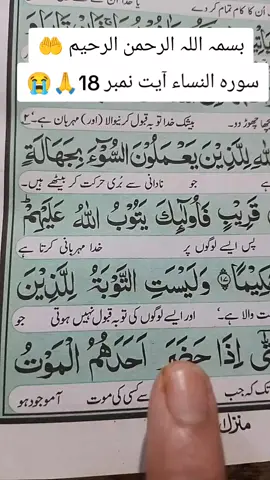 کا کام تمام کر
بسمہ اللہ الرحمن الرحیم 🤲
سورہ النساء آیت نمبر 18🙏😭
چھوڑ دو۔ بیشک خدا توبہ قبول کرنیوالا (اور) مہربان ہے۔
لِلَّذِيْنَ يَعْمَلُوْنَ السُّوْٓءَ بِجَهَالَةٍ
جو نادانی سے بُری حرکت کر بیٹھتے ہیں۔
قَرِيْبٍ فَاُولٰٓئِكَ يَتُوْبُ اللّٰهُ عَلَيْهِمْ
پس ایسے لوگوں پر خدا مہربانی کرتا ہے
وَلَيْسَتِ التَّوْبَةُ لِلَّذِيْنَ
والا ہے۔ اور ایسے لوگوں کی توبہ قبول نہیں ہوتی جو
اِذَا حَضَرَ اَحَدَهُمُ الْمَوْتُ
کہ جب سے کسی کی موت آموجود ہو
منزل